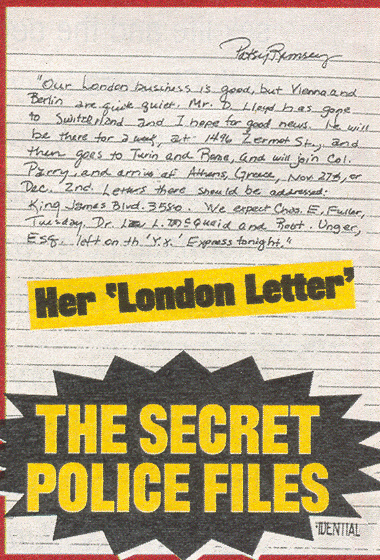 Patsy Ramsey
"Our London business is good, but Vienna and
Berlin are quick quiet. Mr. D. Lloyd has gone
to Switzerland and I hope for good news. He will
be there for a week, at 1496 Zermot St., and
then goes to Turin and Rome, and will join Col.
Parry, and arrive at Athens, Greece, Nov. 27th, or
Dec. 2nd. Letters there should be addressed:
King James Blvd. 3580. We expect Chas. E. Fuller,
Tuesday. Dr. L. McQuaid and Robt. Unger,
Esq. left on th 'Y.X.' Express tonight."
Her 'London Letter'
THE SECRET
POLICE FILES
IDENTIAL